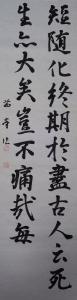 短随化終期於盡古人云死
生亦大矣豈不痛哉每